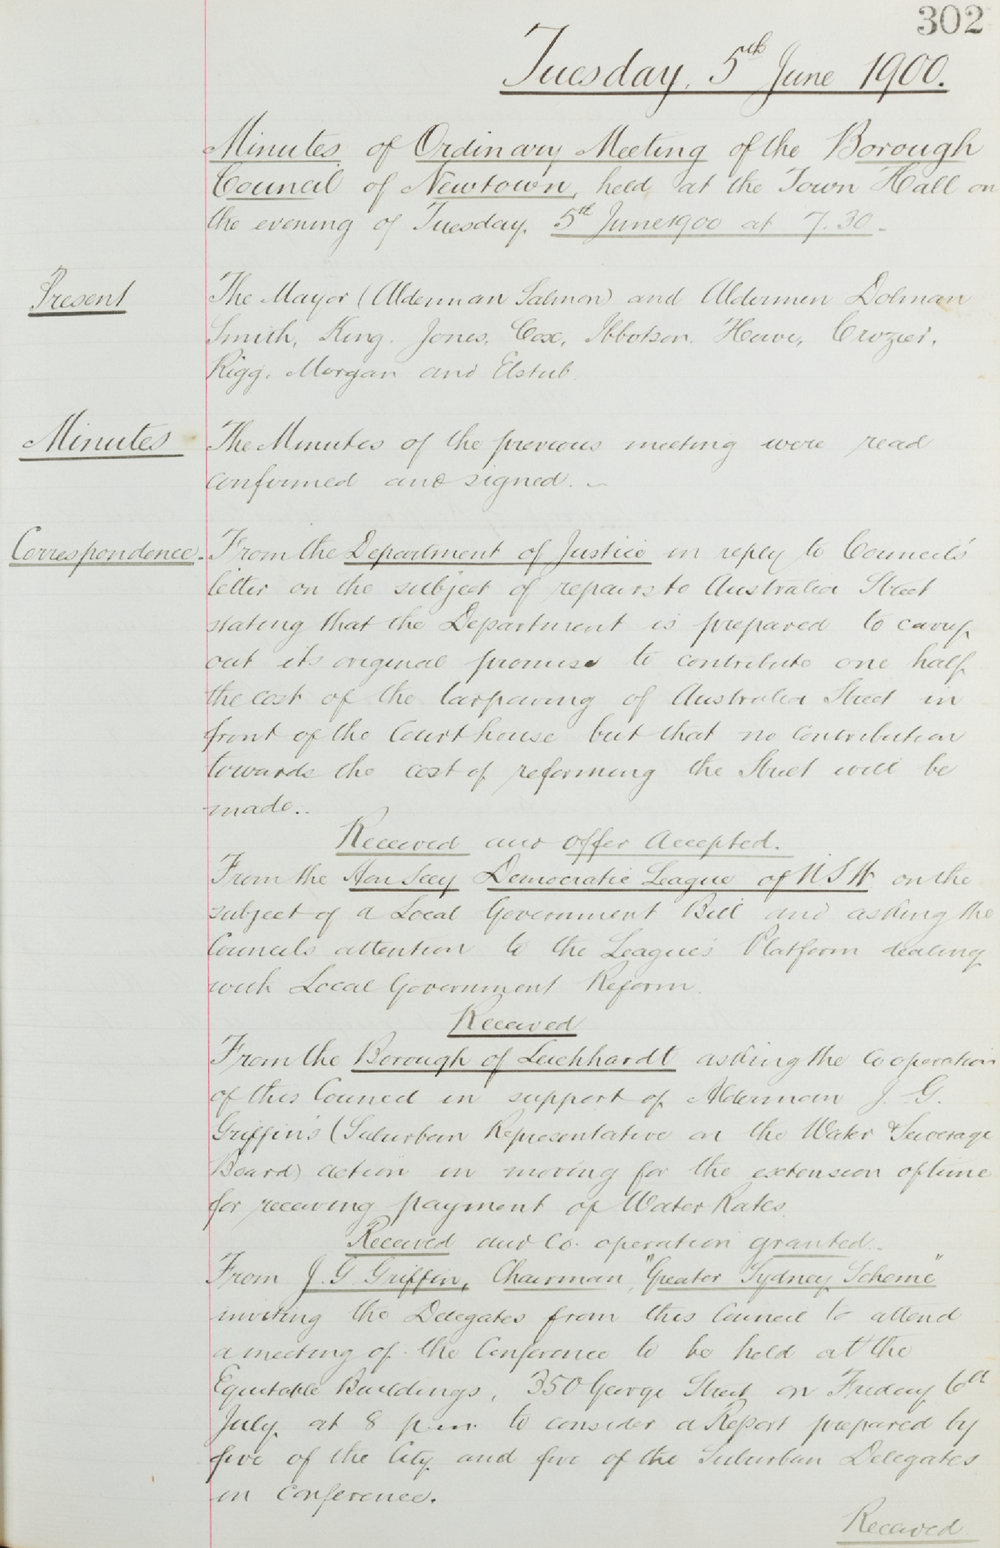 302
Tuesday, 5th June 1900.
Minutes of Ordinary Meeting of the Borough
Council of Newtown, held at the Town Hall on
the evening of Tuesday. 5th June 1900 at 7.30.
Present
The Mayor (Alderman Salmon) and Aldermen Dolman
Smith, King. Jones. Cox, Ibbotson. Howe, Crozier,
Rigg. Morgan and Elstub.
Minutes
The Minutes of the previous meeting were read
confirmed and signed.
Correspondence.
From the Department of Justice in reply to Council's
letter on the subject of repairs to Australia Street
stating that the Department is prepared to carry
out its original promise to contribute one half
the cost of the tarpaving of Australia Street in
front of the Court house but that no contribution
towards the cost of reforming the Street will be
made..
Received and offer Accepted.
From the Hon Secy Democratic League of N S W on the
subject of a Local Government Bill and asking the
Councils attention to the League's Platform dealing
with Local Government Reform.
Received
From the Borough of Leichhardt asking the Cooperation
of this Council in support of Alderman J. G.
Griffin's (Suburban Representative on the Water & Sewerage
Board) action in moving for the extension of time
for receiving payment of Water Rates.
Received and Co. operation granted.
From J. G. Griffin, Chairman, "Greater Sydney Scheme"
inviting the Delegates from this Council to attend
a meeting of the Conference to be held at the
Equitable Buildings, 350 George Street on Friday 6th
July at 8 p.m. to consider a Report prepared by
five of the City and five of the Suburban Delegates
in Conference.
Received